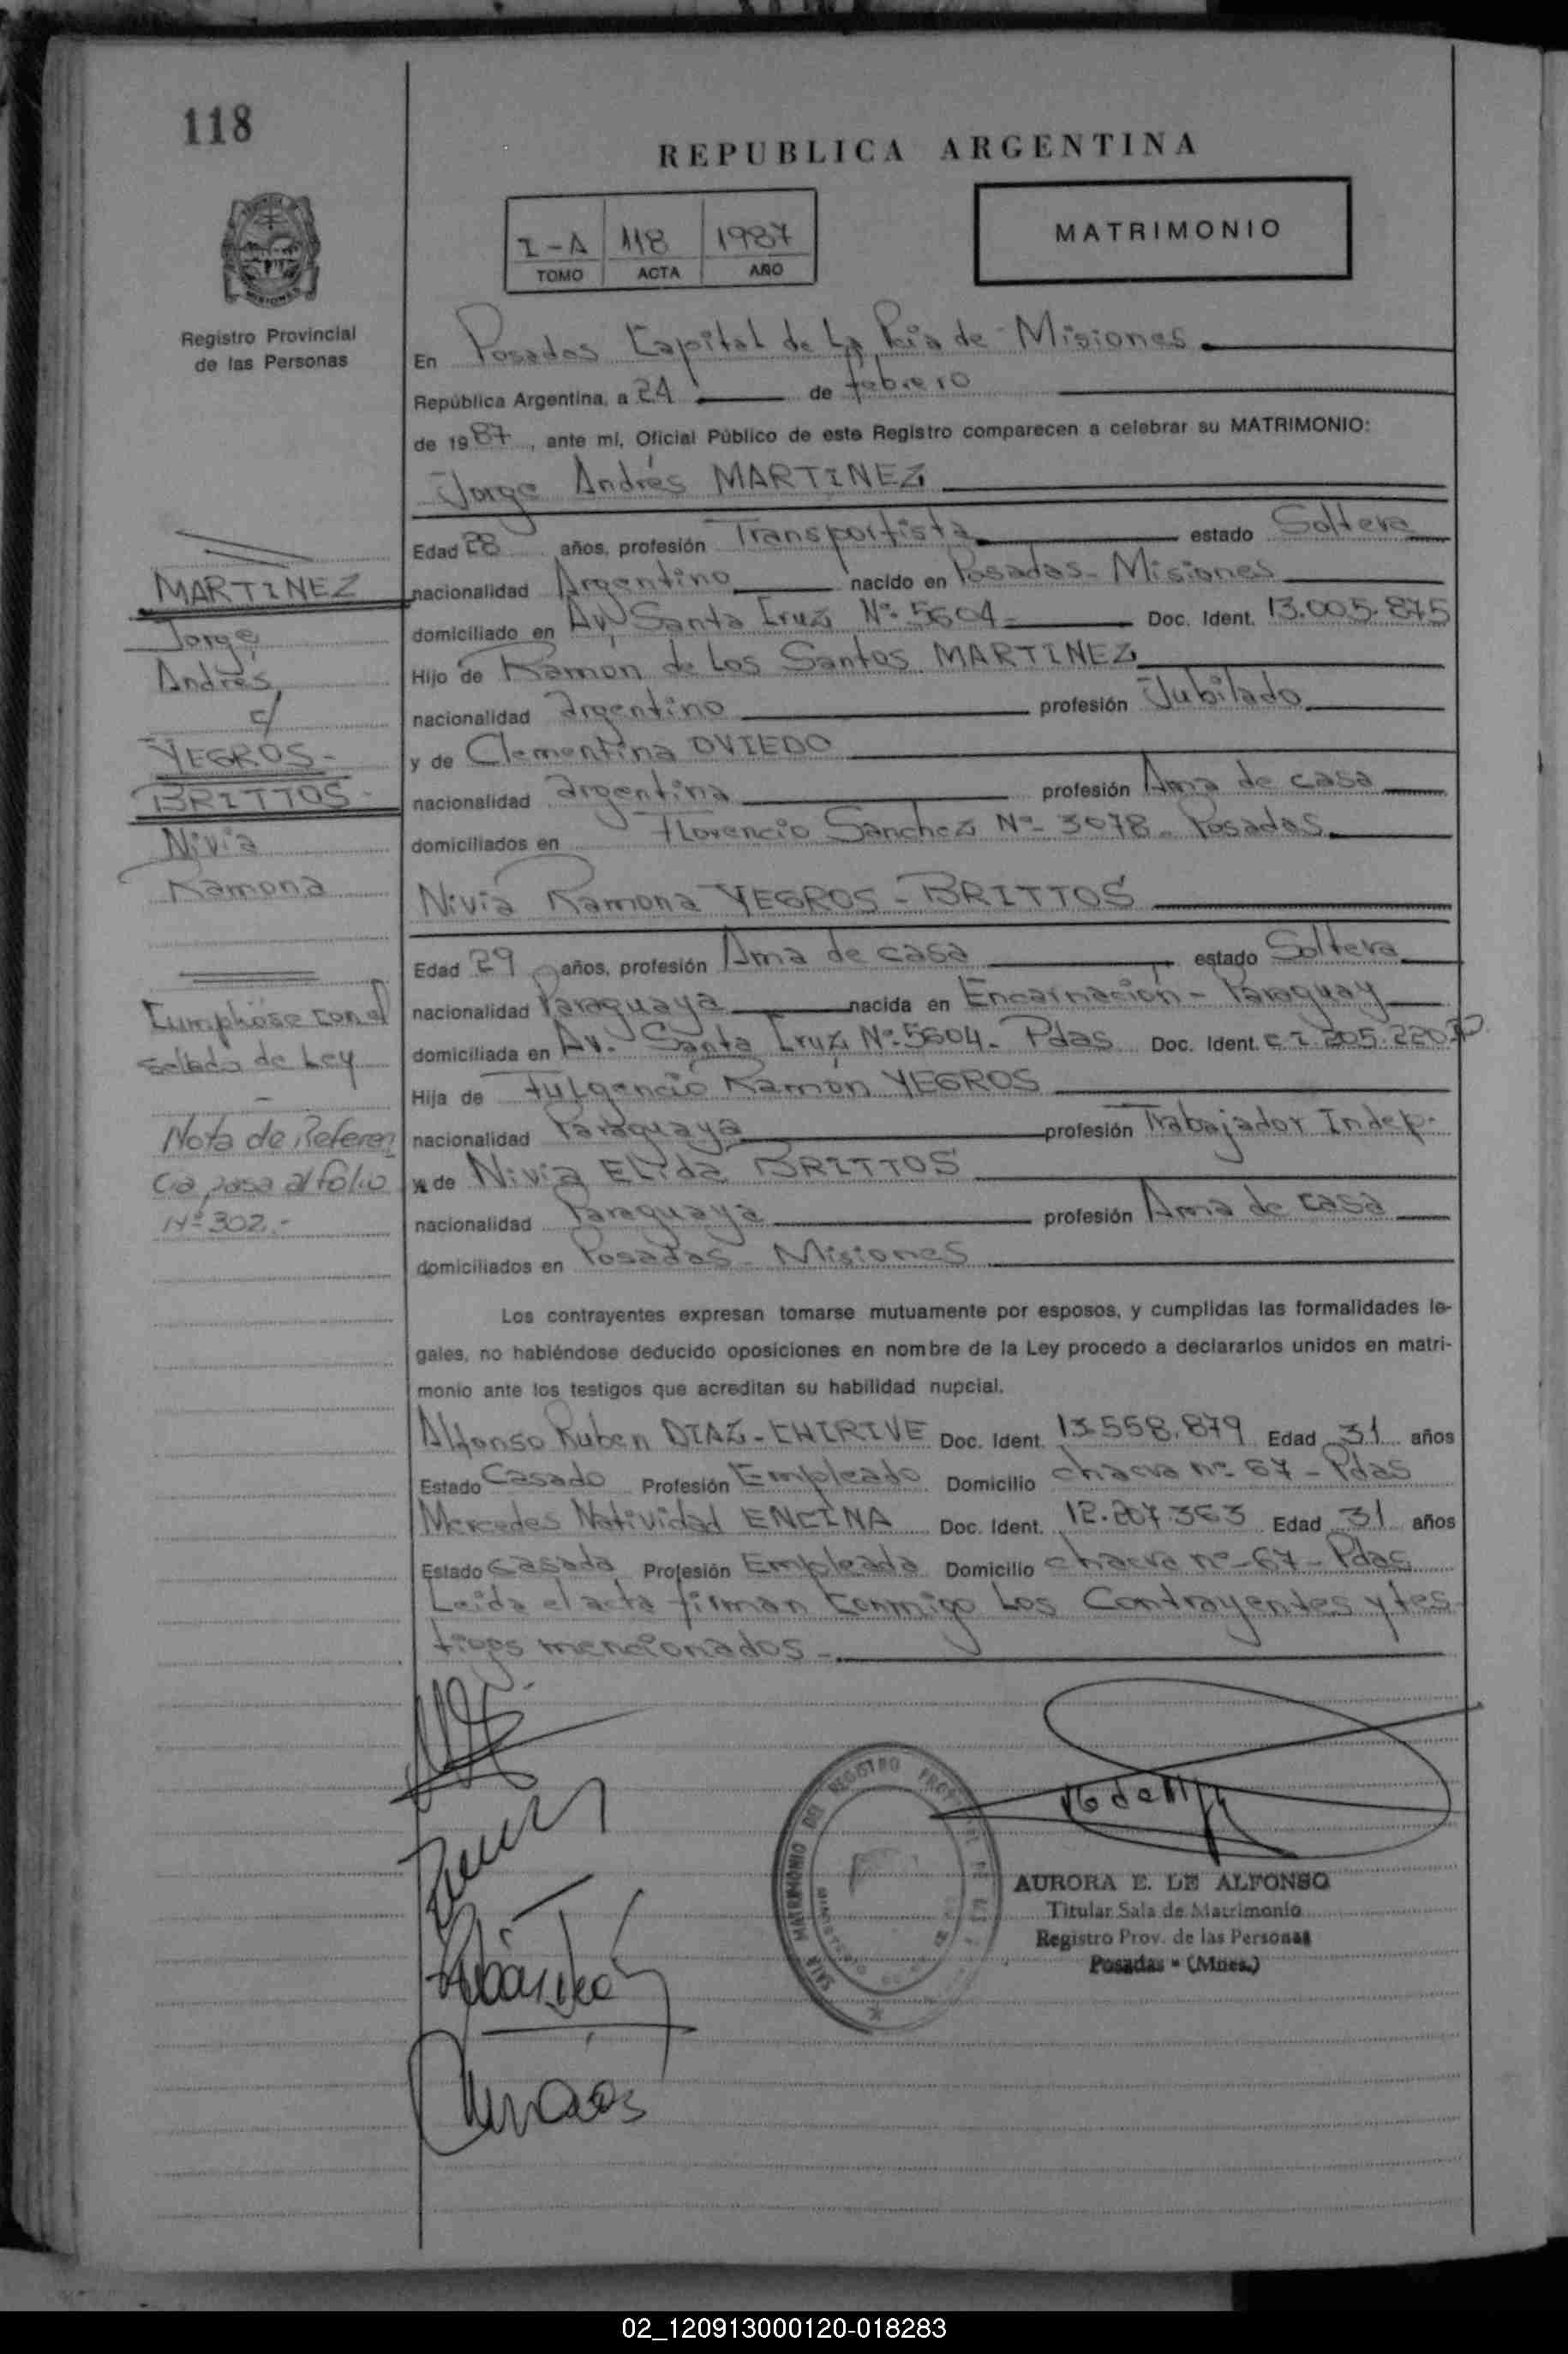 118
REPUBLICA ARGENTINA
I-A 118 1987
TOMO ACTA AÑO
MATRIMONIO
Registro Provincial
de las Personas
En Posadas Capital de La Pcia de Misiones
República Argentina, a 24 de febrero
de 1987, ante mí, Oficial Público de este Registro comparecen a celebrar su MATRIMONIO:
Jorge Andrés MARTINEZ
Edad 28 años, profesión Transportista estado Soltero
nacionalidad Argentino nacido en Posadas - Misiones
domiciliado en Av. Santa Cruz Nº 5604 Doc. Ident. 13.005.875
Hijo de Ramón de Los Santos MARTINEZ
nacionalidad argentino profesión Jubilado
y de Clementina OVIEDO
nacionalidad argentina profesión Ama de casa
domiciliados en Florencio Sanchez Nº 3078 - Posadas
Nivia Ramona YEGROS - BRITTOS
Edad 29 años, profesión Ama de casa estado Soltera
nacionalidad Paraguaya nacida en Encarnación - Paraguay
domiciliada en Av. Santa Cruz Nº 5604 - Pdas Doc. Ident.
Hija de Fulgencio Ramón YEGROS
nacionalidad Paraguaya profesión Trabajador Indep.
y de Nivia Elida BRITTOS
nacionalidad Paraguaya profesión Ama de casa
domiciliados en Posadas - Misiones
Los contrayentes expresan tomarse mutuamente por esposos, y cumplidas las formalidades le-
gales, no habiéndose deducido oposiciones en nombre de la Ley procedo a declararlos unidos en matri-
monio ante los testigos que acreditan su habilidad nupcial.
Alfonso Ruben DIAZ - CHIRIVE Doc. Ident. 13.558.879 Edad 31 años
Estado Casado Profesión Empleado Domicilio chacra nº 67 - Pdas
Mercedes Natividad ENCINA Doc. Ident. 12.207.363 Edad 31 años
Estado Casada Profesión Empleada Domicilio chacra nº 67 - Pdas
Leida el acta firman conmigo Los Contrayentes y tes
tigos mencionados -
MARTINEZ
Jorge
Andrés
c/
YEGROS -
BRITTOS -
Nivia
Ramona
Cumplióse con el
sellado de Ley
Nota de Referen
cia pasa al folio
Nº 302.-
SALA MATRIMONIO DEL REGISTRO
AURORA E. DE ALFONSO
Titular Sala de Matrimonio
Registro Prov. de las Personas
Posadas - (Mnes.)
02_120913000120-018283